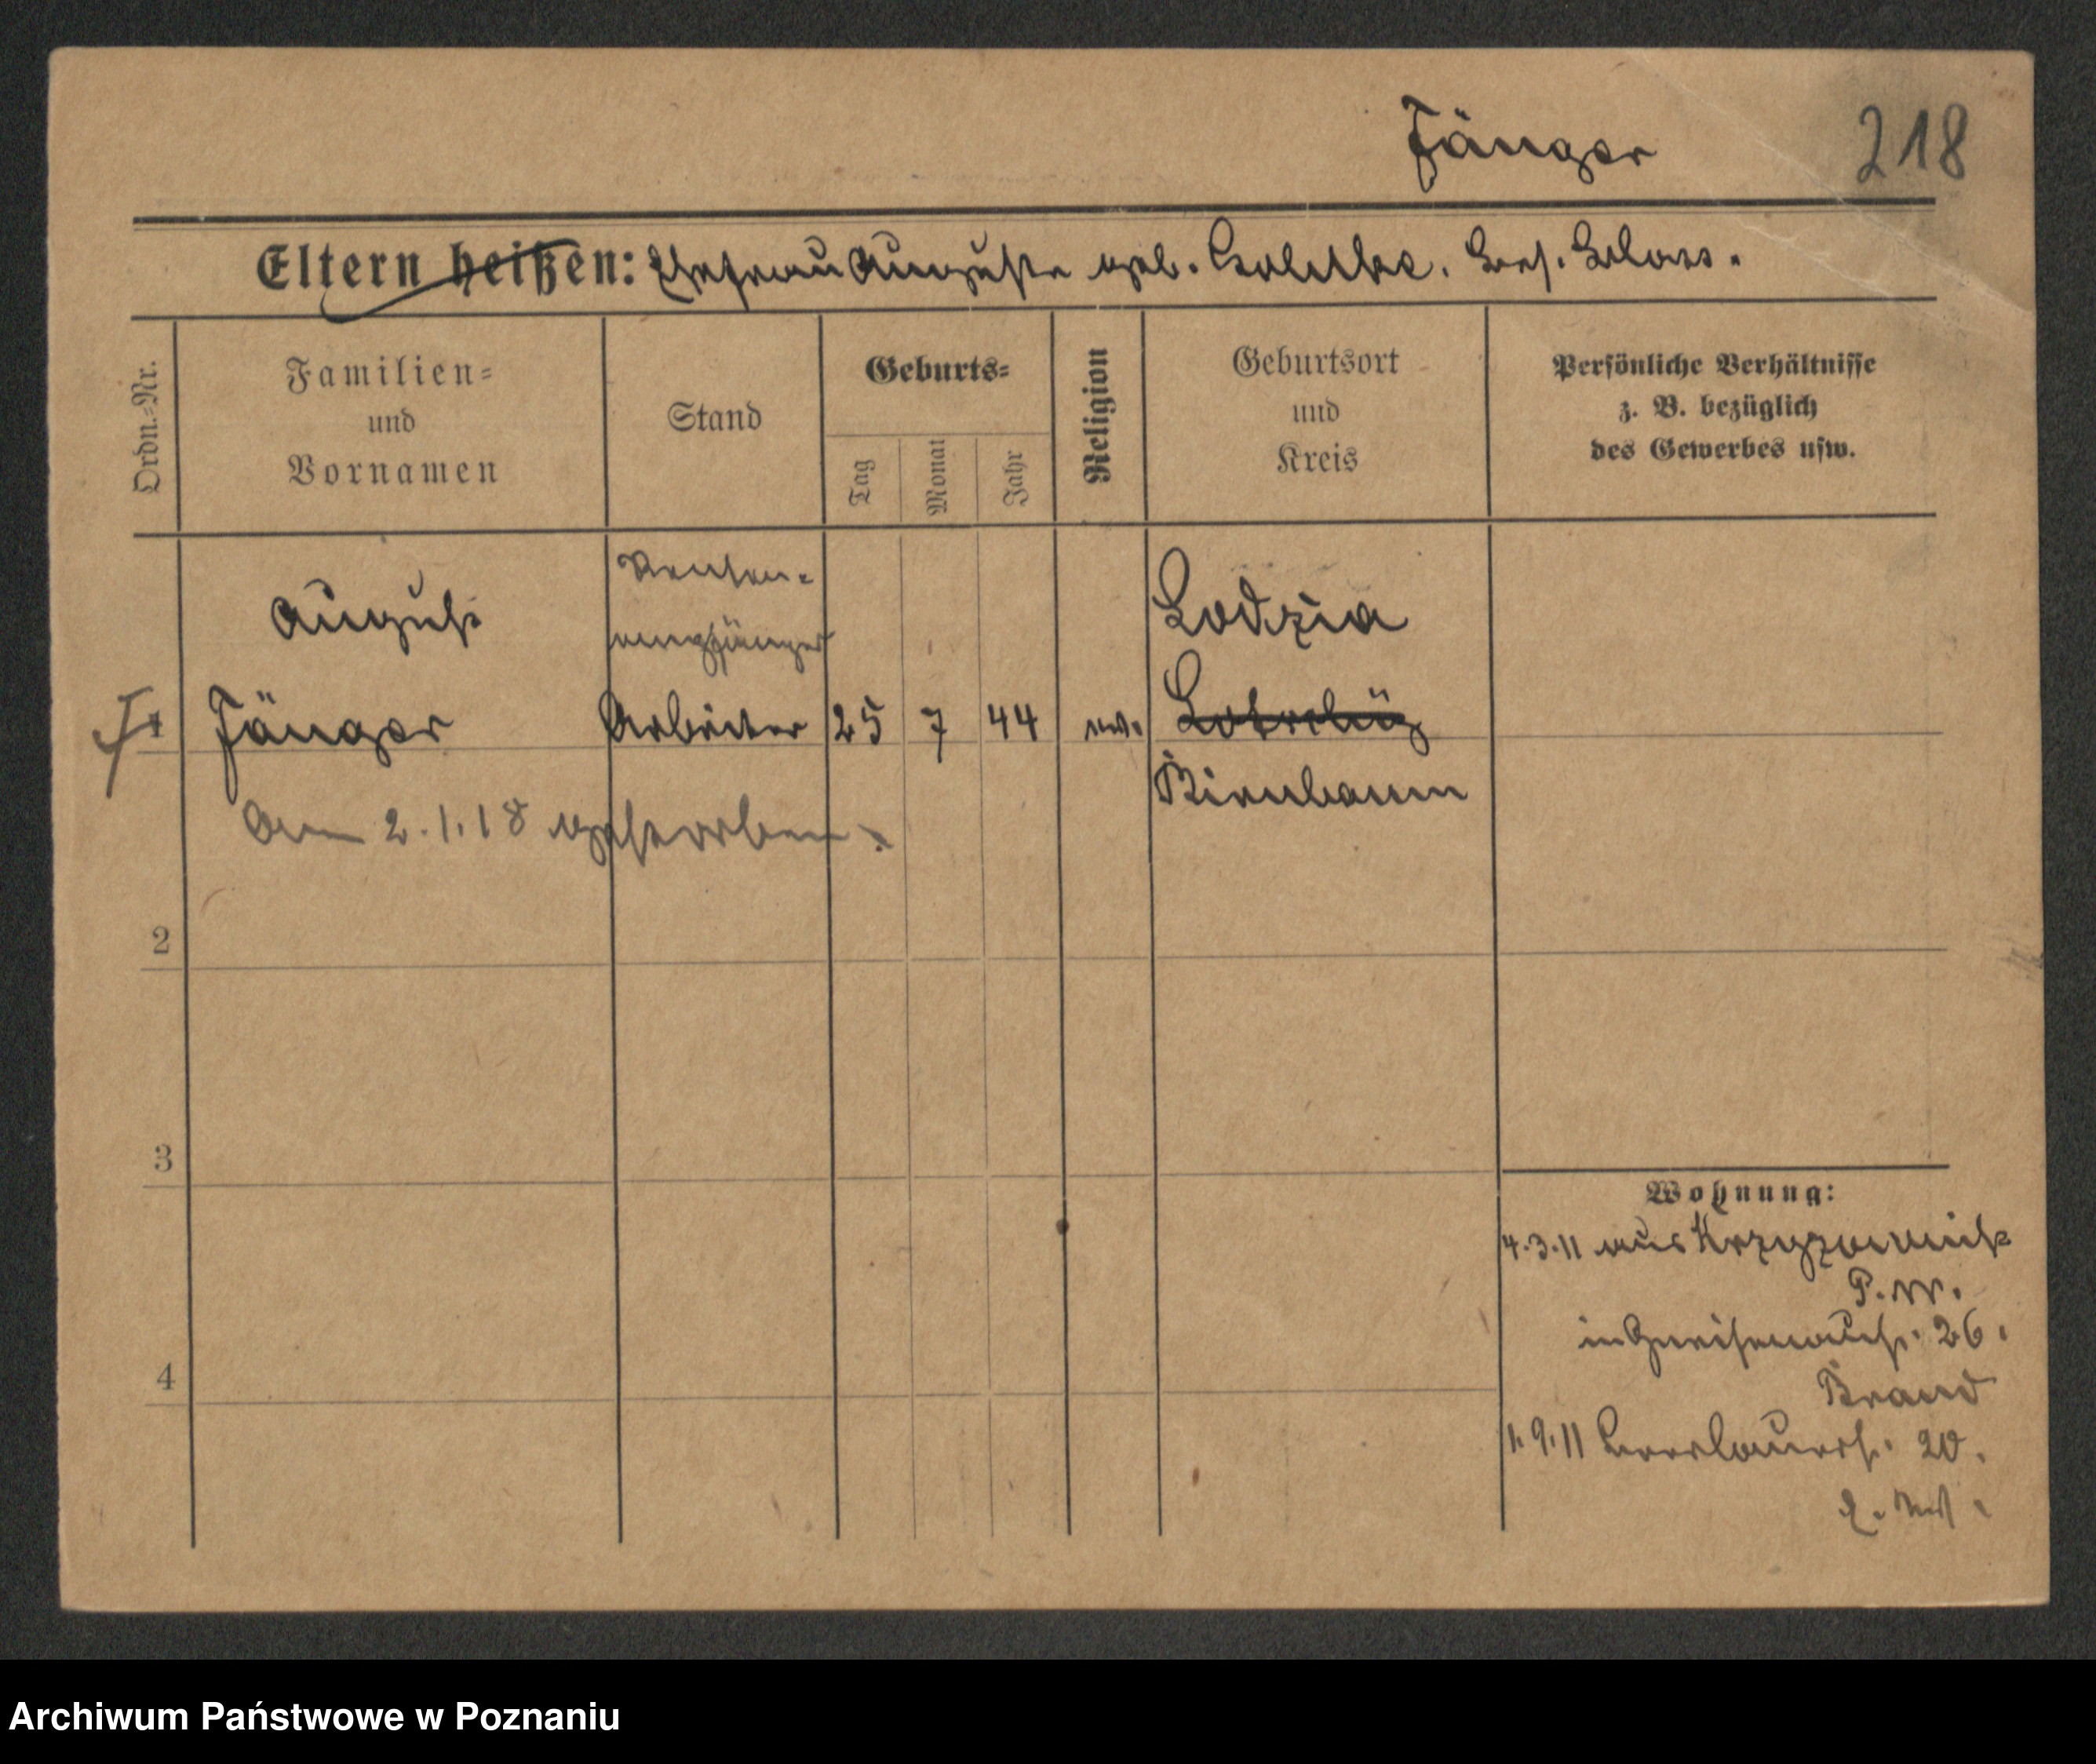 Jänger
218
Eltern heißen: Ehefrau Auguste geb.
Ordn.-Nr.
Familien-
und
Vornamen
Stand
Geburts-
Tag
Monat
Jahr
Religion
Geburtsort
und
Kreis
Persönliche Verhältnisse
z. B. bezüglich
des Gewerbes usw.
August
Renten-
empfänger
Lodzia
Jänger
Arbeiter
25
7
44
ev.
Birnbaum
Am 2.1.18 gestorben.
2
3
4
Wohnung:
4.3.11 aus
P.W.
in Gneisenaustr. 26.
Brand
1.9.11 20.
Archiwum Państwowe w Poznaniu